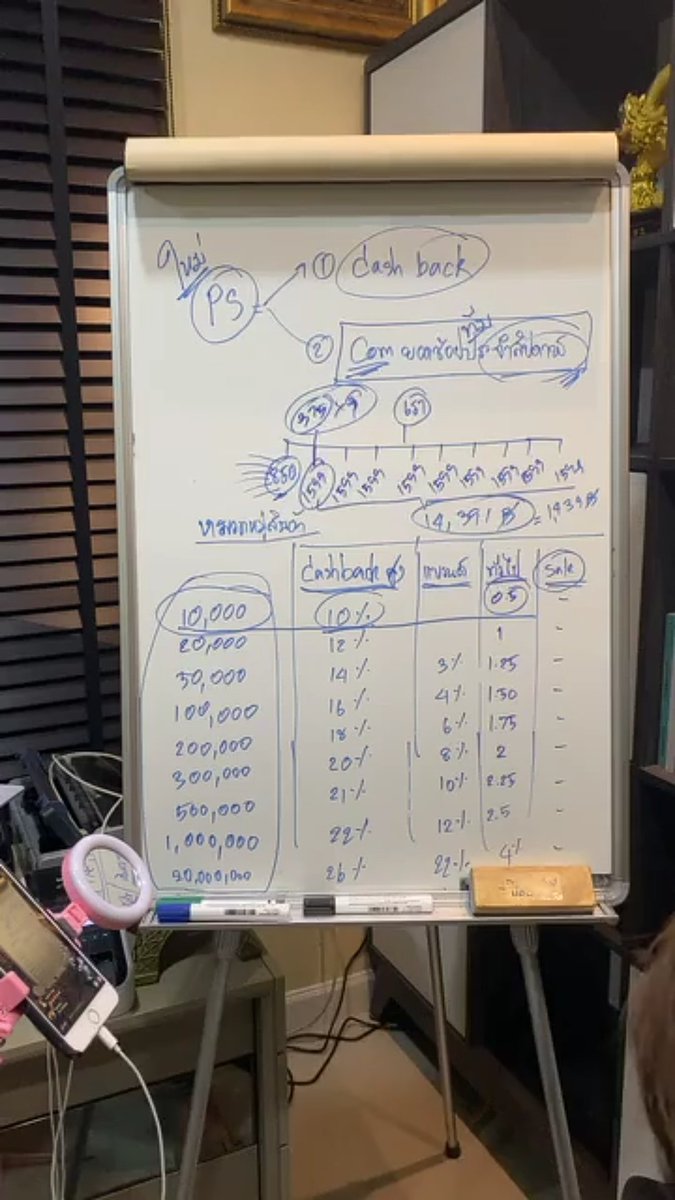 ใหม่
PS
① Cash back
ทีม
② Com ยอดช้อปประจำสัปดาห์
657
850 1599 1599 1599 1599 1599 1599 1599 1599 1599
14,391 ฿ = 1,439 ฿
หมวดหมู่สินค้า
Cashback แบรนด์ ทั่วไป Sale
10,000 10% 0.5 -
20,000 12% 1 -
50,000 14% 3% 1.25 -
100,000 16% 4% 1.50 -
200,000 18% 6% 1.75 -
300,000 20% 8% 2 -
500,000 21% 10% 2.25 -
1,000,000 22% 12% 2.5 -
50,000,000 26% 22% 4% -